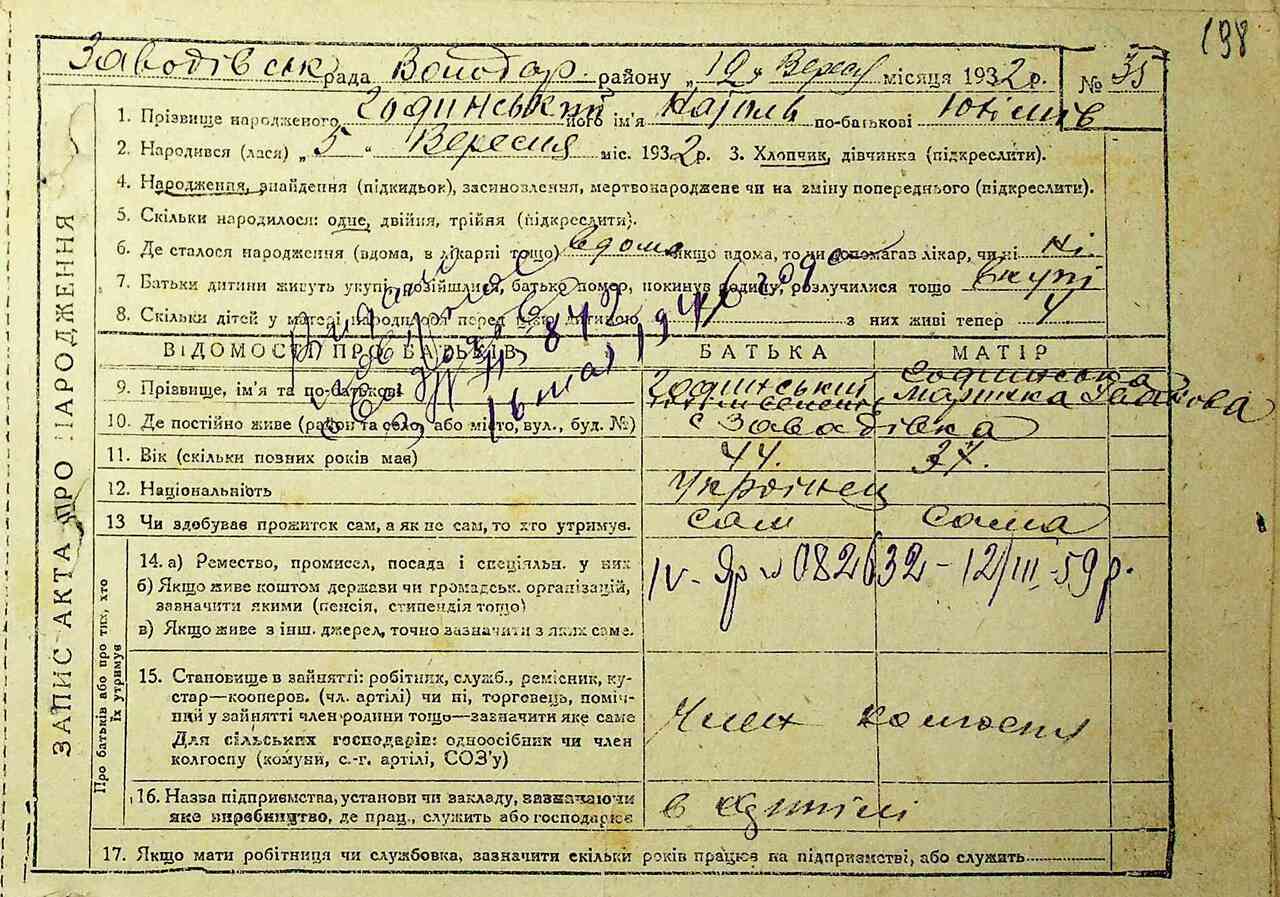 198
Заводівськ рада Володар. району „19„ Вересня місяця 1932 р. № 35
1. Прізвище народженого Годинський його ім'я Кароль по-батькові
2. Народився (лася) „5“ Вересня міс. 1932 р. 3. Хлопчик, дівчинка (підкреслити).
4. Народження, знайдення (підкидьок), засиновлення, мертвонароджене чи на зміну попереднього (підкреслити).
5. Скільки народилося: одне, двійня, трійня (підкреслити).
6. Де сталося народження (вдома, в лікарні тощо) вдома якщо вдома, то чи допомагав лікар, чи ні ні.
7. Батьки дитини живуть укупі, розійшлися, батько помер, покинув родину, розлучилися тощо вкупі
8. Скільки дітей у матері народилося перед цією дитиною з них живі тепер 4
16 мая 1946 года
ВІДОМОСТІ ПРО БАТЬКІВ БАТЬКА МАТІР
9. Прізвище, ім'я та по-батькові Годинський Годинська
Марика
10. Де постійно живе (район та село, або місто, вул., буд. №) с Завадівка
11. Вік (скільки повних років має) 44. 37.
12. Національність Українец
13 Чи здобуває прожиток сам, а як не сам, то хто утримує. сам сама
Про батьків або про тих, хто їх утримує
14. а) Ремество, промисел, посада і спеціяльн. у них
б) Якщо живе коштом держави чи громадськ. організацій,
зазначити якими (пенсія, стипендія тощо)
в) Якщо живе з інш. джерел, точно зазначити з яких саме.
IV-Яр № 082632 - 12/III-59 р.
15. Становище в зайнятті: робітник, служб., ремісник, ку-
стар—кооперов. (чл. артілі) чи ні, торговець, поміч-
ний у зайнятті член родини тощо—зазначити яке саме
Для сільських господарів: одноосібник чи член
колгоспу (комуни, с.-г. артілі, СОЗ'у)
Член колгоспу
16. Назва підприємства, установи чи закладу, зазначаючи
яке виробництво, де прац., служить або господарює
в артілі
17. Якщо мати робітниця чи службовка, зазначити скільки років працює на підприємстві, або служить
ЗАПИС АКТА ПРО НАРОДЖЕННЯ